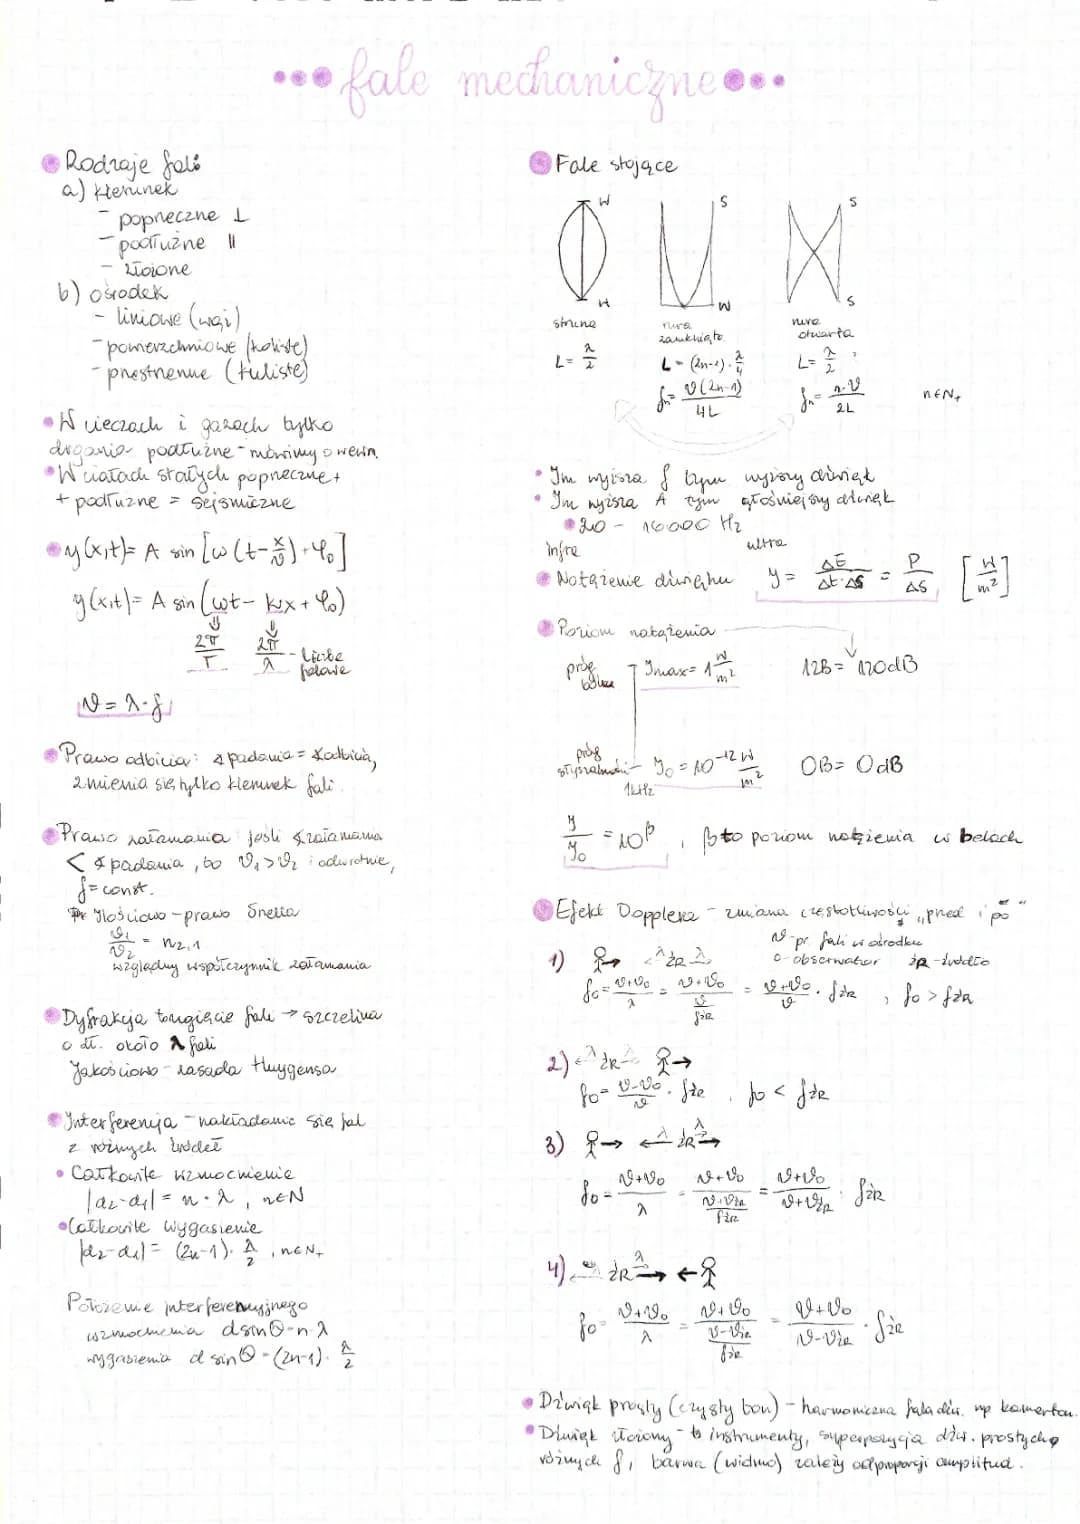 fale mechaniczne
Rodzaje fali
a) kierunek
- poprzeczne ⊥
- podłużne ||
- złożone
b) ośrodek
- liniowe (wąż)
- powierzchniowe (koliste)
- przestrzenne (kuliste)
W cieczach i gazach tylko
drgania podłużne - mówimy o wewn.
W ciałach stałych poprzeczne +
+ podłużne = sejsmiczne
y(x,t) = A sin [ω(t-x/v)+φ₀]
y(x,t) = A sin(ωt - kx + φ₀)
⇓ ⇓
2π/T 2π/λ - liczba
falowa
v = λ·f
Prawo odbicia: ∢ padania = ∢ odbicia,
zmienia się tylko kierunek fali.
Prawo załamania jeśli ∢ załamania
< ∢ padania, to v₁ > v₂ i odwrotnie,
f = const.
Ilościowo - prawo Snella
v₁/v₂ = n₂,₁
względny współczynnik załamania
Dyfrakcja to ugięcie fali → szczelina
o dł. około λ fali
Jakościowo - zasada Huygensa
Interferencja - nakładanie się fal
z różnych źródeł
Całkowite wzmocnienie
|d₂-d₁| = n·λ, n∈N
Całkowite wygasienie
|d₂-d₁| = (2n-1)·λ/2, n∈N₊
Położenie interferencyjnego
wzmocnienia d sinθ = n·λ
wygasienia d sinθ = (2n-1)·λ/2
Fale stojące
W S S
W W S
struna rura zamknięta rura otwarta
L = λ/2 L = (2n-1)·λ/4 L = λ/2,
fₙ = v(2n-1)/4L fₙ = n·v/2L n∈N₊
Im wyższa f tym wyższy dźwięk
Im wyższa A tym głośniejszy dźwięk
20 - 16000 Hz
infra ultra
Natężenie dźwięku y = ΔE/Δt·ΔS = P/ΔS [W/m²]
Poziom natężenia
próg bólu Jmax = 1 W/m² 12B = 120dB
próg słyszalności J₀ = 10⁻¹² W/m² 0B = 0dB
1kHz
y/y₀ = 10^β, β to poziom natężenia w belach
Efekt Dopplera - zmiana częstotliwości „przed i po"
v - pr fali w ośrodku
o - obserwator źR - źródło
1) → λ źR λ
f₀ = v+v₀/λ = v+v₀/(v/fźR) = v+v₀/v · fźR, f₀ > fźR
2) λ źR λ →
f₀ = v-v₀/v · fźR, f₀ < fźR
3) → ← λ źR λ →
f₀ = v+v₀/λ = v+v₀/(v+vźR/fźR) = v+v₀/v+vźR · fźR
4) źR λ → ←
f₀ = v+v₀/λ = v+v₀/(v-vźR/fźR) = v+v₀/v-vźR · fźR
Dźwięk prosty (czysty ton) - harmoniczna fala dźw. np kamerton.
Dźwięk złożony - to instrumenty, superpozycja dźw. prostych o
różnych f, barwa (widmo) zależy od proporcji amplitud.